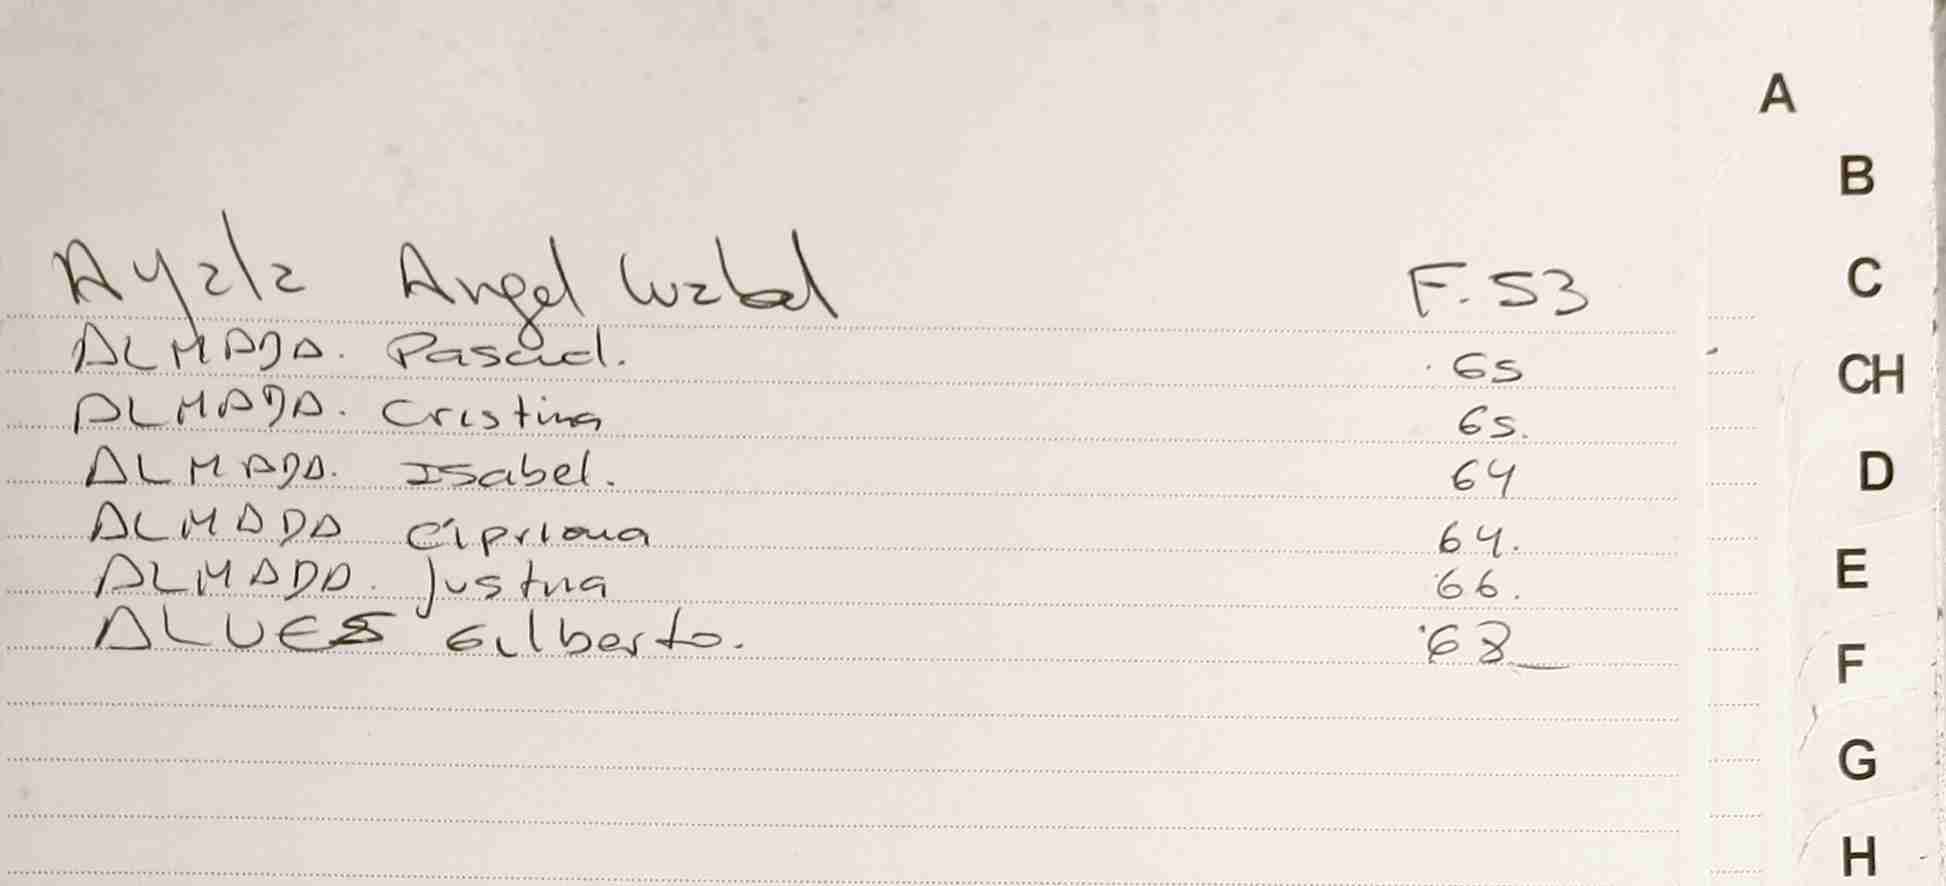 A
B
Ayala Angel F. 53
C
ALMADA. Pascual. 65
CH
ALMADA. Cristina 65.
ALMADA. Isabel. 64
D
ALMADA Cipriana 64.
ALMADA. Justina 66.
E
ALVES Gilberto. 68
F
G
H